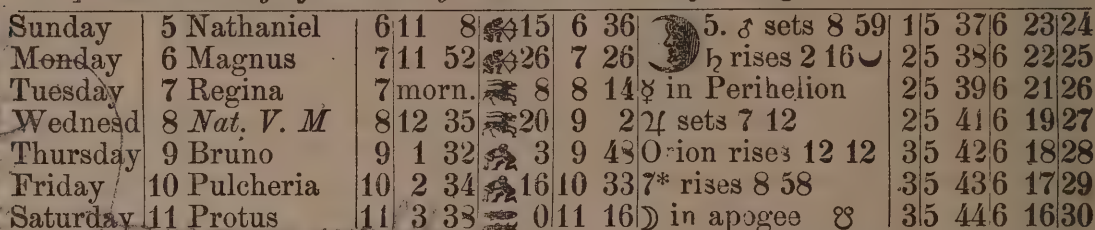 Sunday 5 Nathaniel 6 11 8 15 6 36 5. ♂ sets 8 59 1 5 37 6 23 24
Monday 6 Magnus 7 11 52 26 7 26 ♄ rises 2 16 2 5 38 6 22 25
Tuesday 7 Regina 7 morn. 8 8 14 ☿ in Perihelion 2 5 39 6 21 26
Wednesd 8 Nat. V. M 8 12 35 20 9 2 ♃ sets 7 12 2 5 41 6 19 27
Thursday 9 Bruno 9 1 32 3 9 48 Orion rises 12 12 3 5 42 6 18 28
Friday 10 Pulcheria 10 2 34 16 10 33 7* rises 8 58 3 5 43 6 17 29
Saturday 11 Protus 11 3 38 0 11 16 ☽ in apogee ☋ 3 5 44 6 16 30